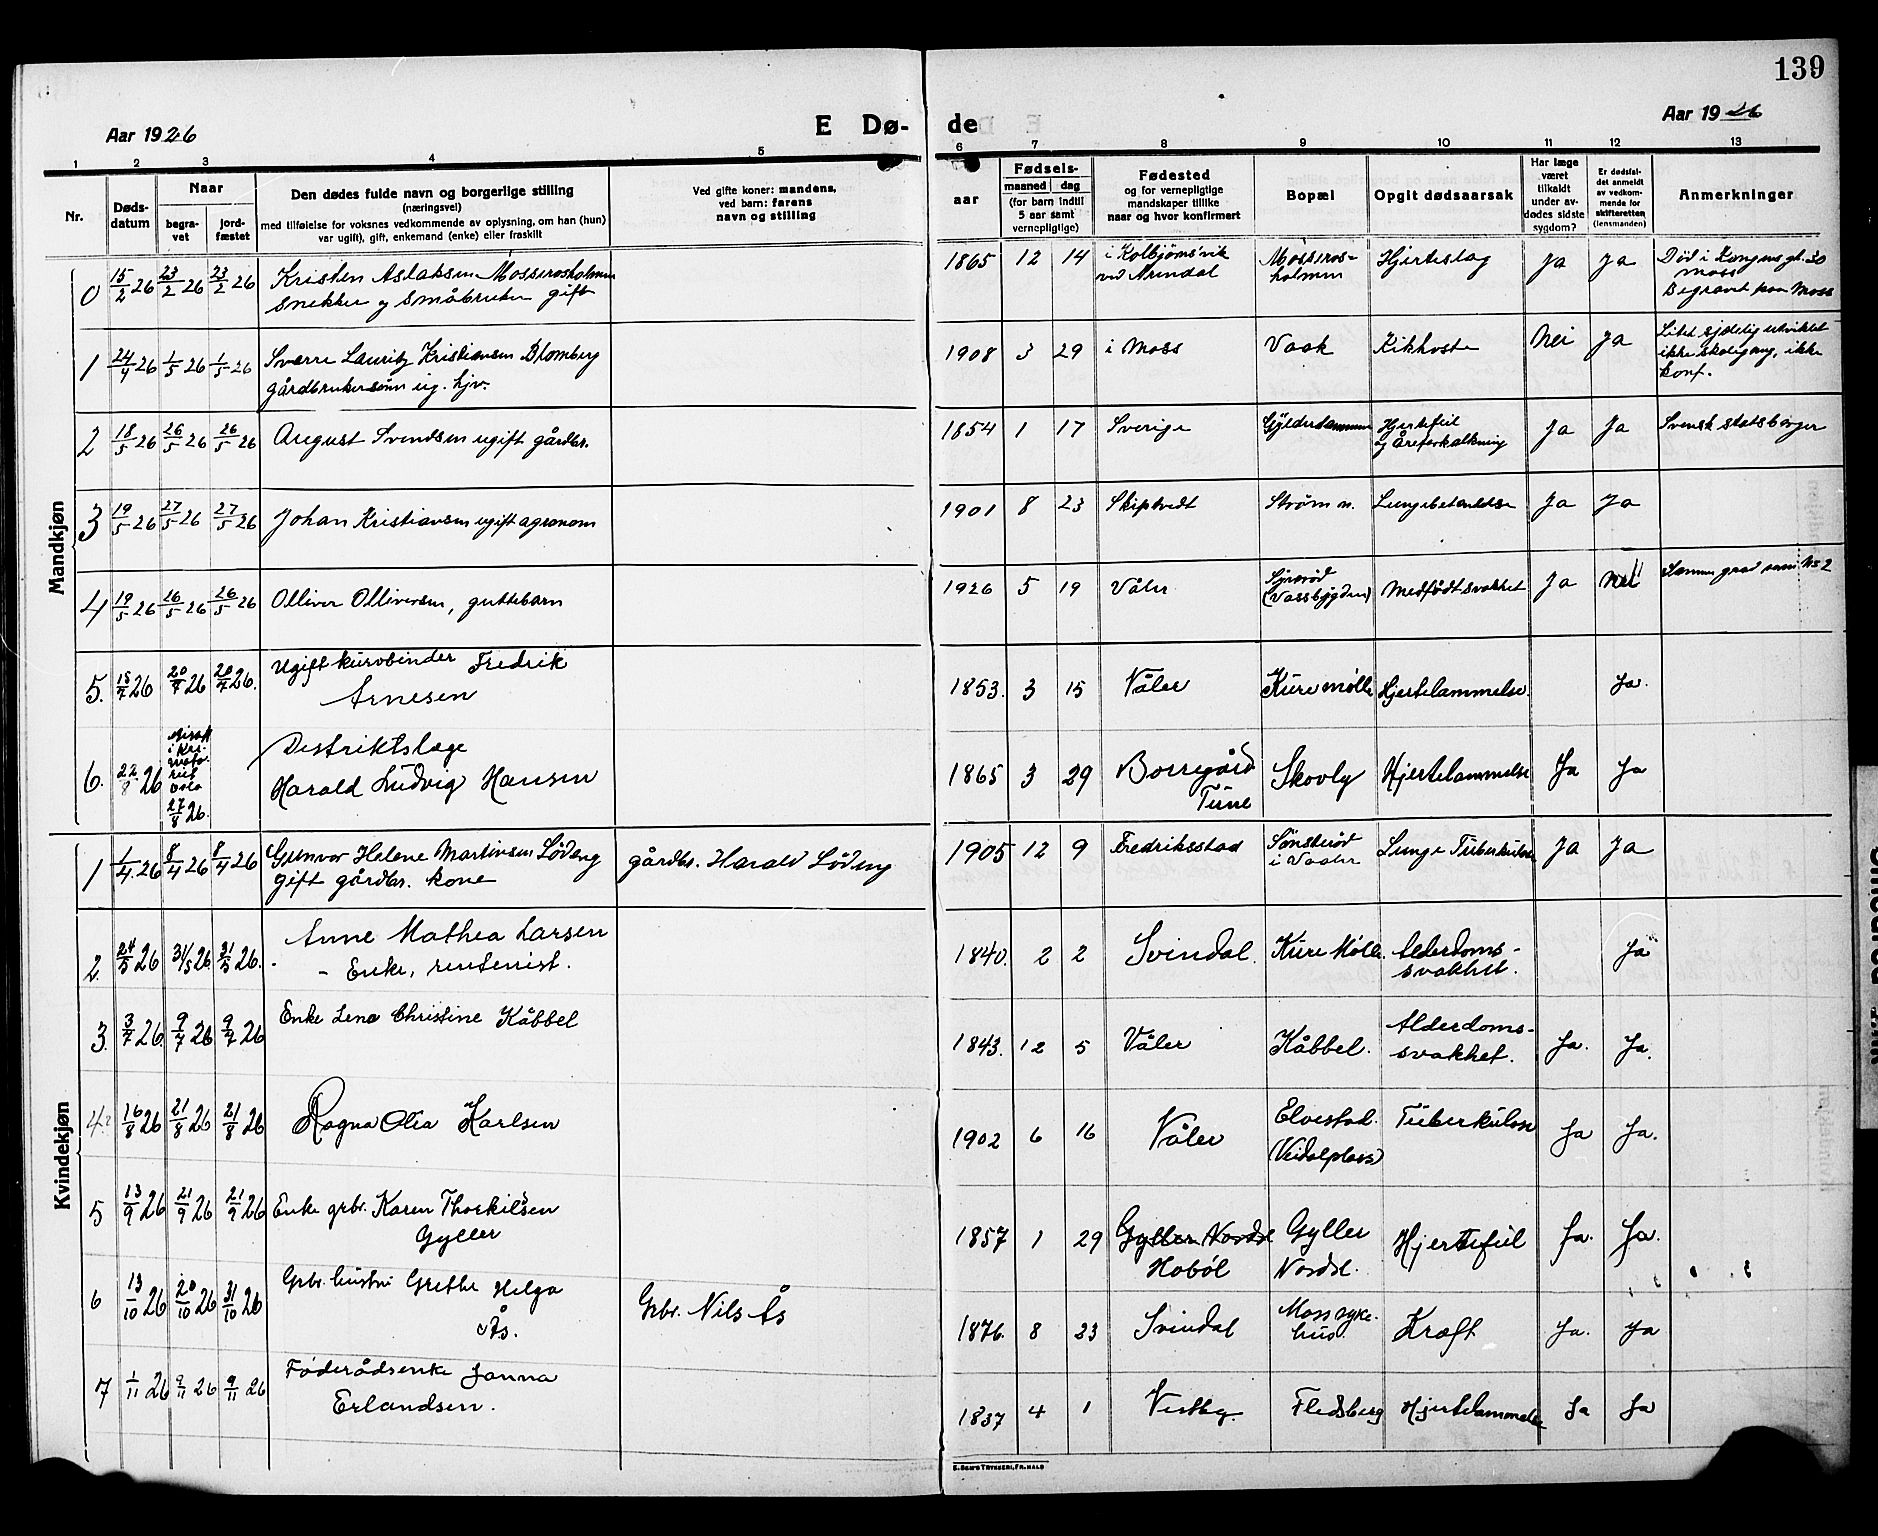 139
Aar 1926
E Dø- de
Aar 1926
1 2 3 4 5 6 7 8 9 10 11 12 13
Nr.
Døds-
datum
Naar
begra-
vet
jord-
fæstet
Den dødes fulde navn og borgerlige stilling
(næringsvei)
med tilføielse for voksnes vedkommende av oplysning, om han (hun)
var ugift, gift, enkemand (enke) eller fraskilt
Ved gifte koner: mandens,
ved barn: farens
navn og stilling
Fødsels-
aar
maaned dag
(for barn indtil
5 aar samt
vernepligtige)
Fødested
og for vernepligtige
mandskaper tillike
naar og hvor konfirmert
Bopæl
Opgit dødsaarsak
Har læge
været
tilkaldt
under av-
dødes sidste
sygdom?
Er dødsfal-
det anmeldt
av vedkom-
mende for
skifteretten
(lensmanden)
Anmerkninger
Mandkjøn
0 15/2 26 23/2 26 23/2 26 Kristen Aslaksen Mosserosholmen 1865 12 14 i Kolbjørnsvik Mosseros- Hjerteslag Ja Ja
snekker og småbruker gift ved Arendal holmen
moss
Begravet paa Moss
1 24/4 26 1/5 26 1/5 26 Sverre Lauritz Kristiansen Blomberg 1908 3 29 i Moss Vaak Kikhoste Nei Ja Litet sjælelig utviklet
gårdbrukersønn ug. hjv. ikke skolegang, ikke
konf.
2 18/5 26 26/5 26 26/5 26 August Svendsen ugift gårdbr. 1854 1 17 Sverige Gylderdammen Hjertefeil Ja Ja Svensk statsborger
og Åreforkalkning
3 19/5 26 27/5 26 27/5 26 Johan Kristiansen ugift agronom 1901 8 23 Skiptvedt Strøm n. Lungebetendelse Ja Ja
4 19/5 26 26/5 26 Olliver Olliversen, guttebarn 1926 5 19 Våler Medfødt svakhet Ja Nei Samme grav som No 2
(Vassbygden)
5. 15/7 26 20/7 26 20/7 26. Ugift kurvbinder Fredrik
Arnesen 1853. 3 15 Våler Kure mølle Hjertelammelse. Ja.
6. 22/8 26 27/8 26. Distriktslæge
Harald Ludvig Hansen 1865 3 29 Borregård Skovly Hjertelammelse Ja Ja
Tune
Kvindekjøn
1 1/4 26 8/4 26 8/4 26 Gunvor Helene Martinsen Lødeng gårdbr. Harald Lødeng 1905 12 9 Fredriksstad Sønsterød Lunge Tuberkulose Ja Ja
gift gårdbr. kone i Vaaler
2 24/5 26 31/5 26 31/5 26. Anne Mathea Larsen 1840. 2 2 Svindal. Kure Mølle. Alderdoms- Ja
- Enke, rentenist. svakhet.
3. 3/7 26. 9/7 26 9/7 26 Enke Lena Christine Kåbbel 1843. 12 5 Våler Kåbbel. Alderdoms- Ja. Ja.
svakhet.
4 16/8 26 21/8 26 21/8 26 Ragna Olea Karlsen 1902 6 16 Våler Elvestad. Tuberkulose Ja Ja.
(Veidalplass)
5 13/9 26 21/9 26 21/9 26 Enke grbr. Karen Thorkilsen 1857 1 29 Gyller Nordre Gyller Hjertefeil Ja. Ja.
Gyller Hobøl Nordre.
6 13/10 26 20/10 26 31/10 26 Grbr. hustru Grethe Helga Grbr. Nils Ås 1876. 8 23 Svindal Moss syke- Kræft Ja. Ja
Ås. hus.
7 1/11 26 9/11 26 9/11 26 Føderådsenke Janna 1837 4 1 Vestby. Fledsberg Hjertelammelse Ja Ja
Erlandsen.